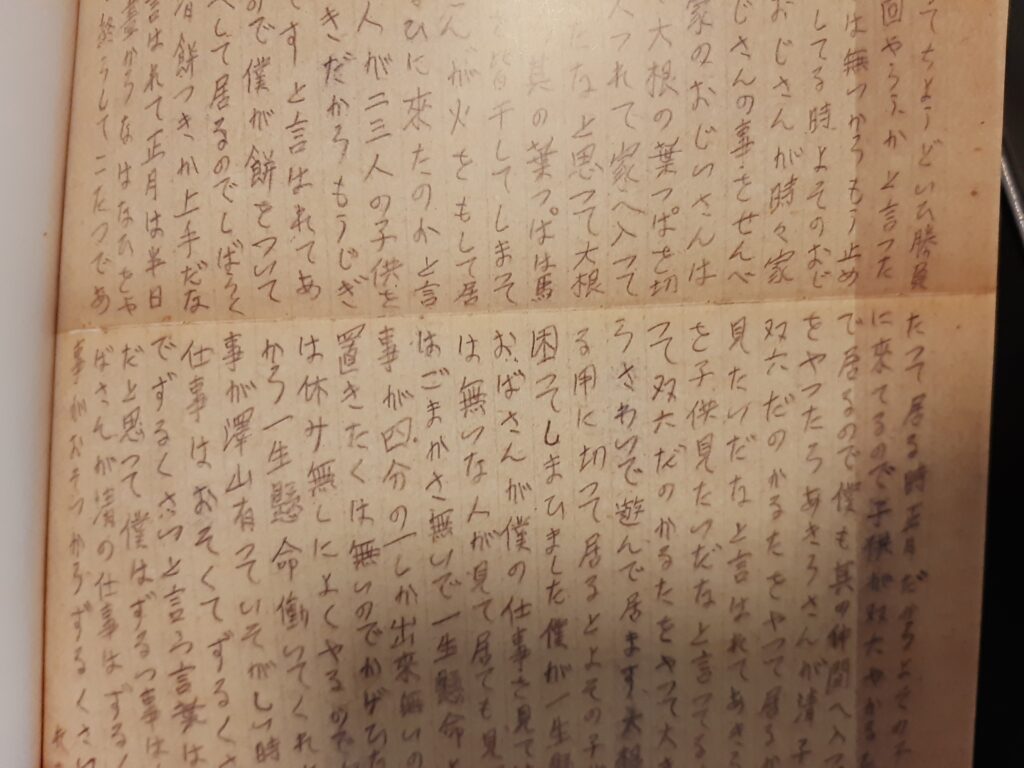 てちょうどいひ勝負
回やらふか と言った
は無つからもう止め
してる時よそのおじ
おじさんが時々家
じさんの事をせんべ
家のおじいさんは
大根の葉っぱを切
つれて家へ入つて
たなと思つて大根
其の葉っぱは馬
皆干してしまそ
んが火をもして居
るひに來たのかと言
人が二三人の子供を
きだからもうじぎ
ですと言はれてあ
ので僕が餅をついて
へして居るのでしばらく
者餅つきが上手だな
言はれて正月は半日
からなはなひをや
終らしてこたつであ
たつて居る時正月だからよその子
に来てるので子供が双六やかる
で居るので僕も其の仲間へ入つ
をやつたらあきらさんが清子
双六だのかるたをやつて居るか
見たいだなと言はれてあきら
を子供見たいだなと言つてる
て双六だのかるたをやつて大き
うさわいで遊んで居ます大根
る用に切つて居るとよその子
困つてしまひました僕が一生懸
おばさんが僕の仕事を見て
は無いな人が見て居ても見
はごまかさ無いで一生懸命と
事が四分の一しか出来無いの
置きたくは無いのでかげひた
は休み無しによくやるので
から一生懸命働いてくれ
事が澤山有っていそがしい時
仕事はおそくてずるくさ
でずるくさいと言う言葉は
だと思つて僕はずるつ事は
ばさんが清の仕事はずる
事がおそつからずるくさい